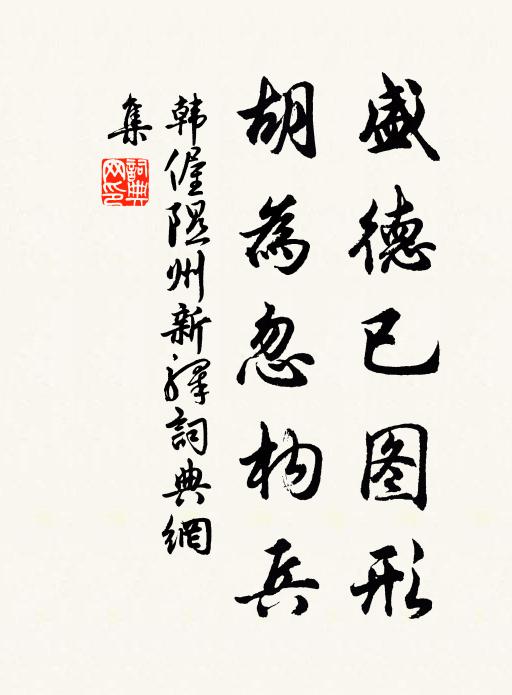 盛德已图形
胡為忽构兵
韩偓隰州新驿詞典網
集
詞典网印